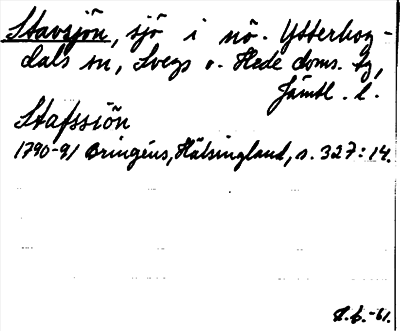 Stavsjön, sjö i nö. Ytterhog-
dals sn, Svegs o. Hede doms. tg,
Jämtl. l.
Stafssiön
1790-91 Bringéus, Hälsingland, s. 327:14.